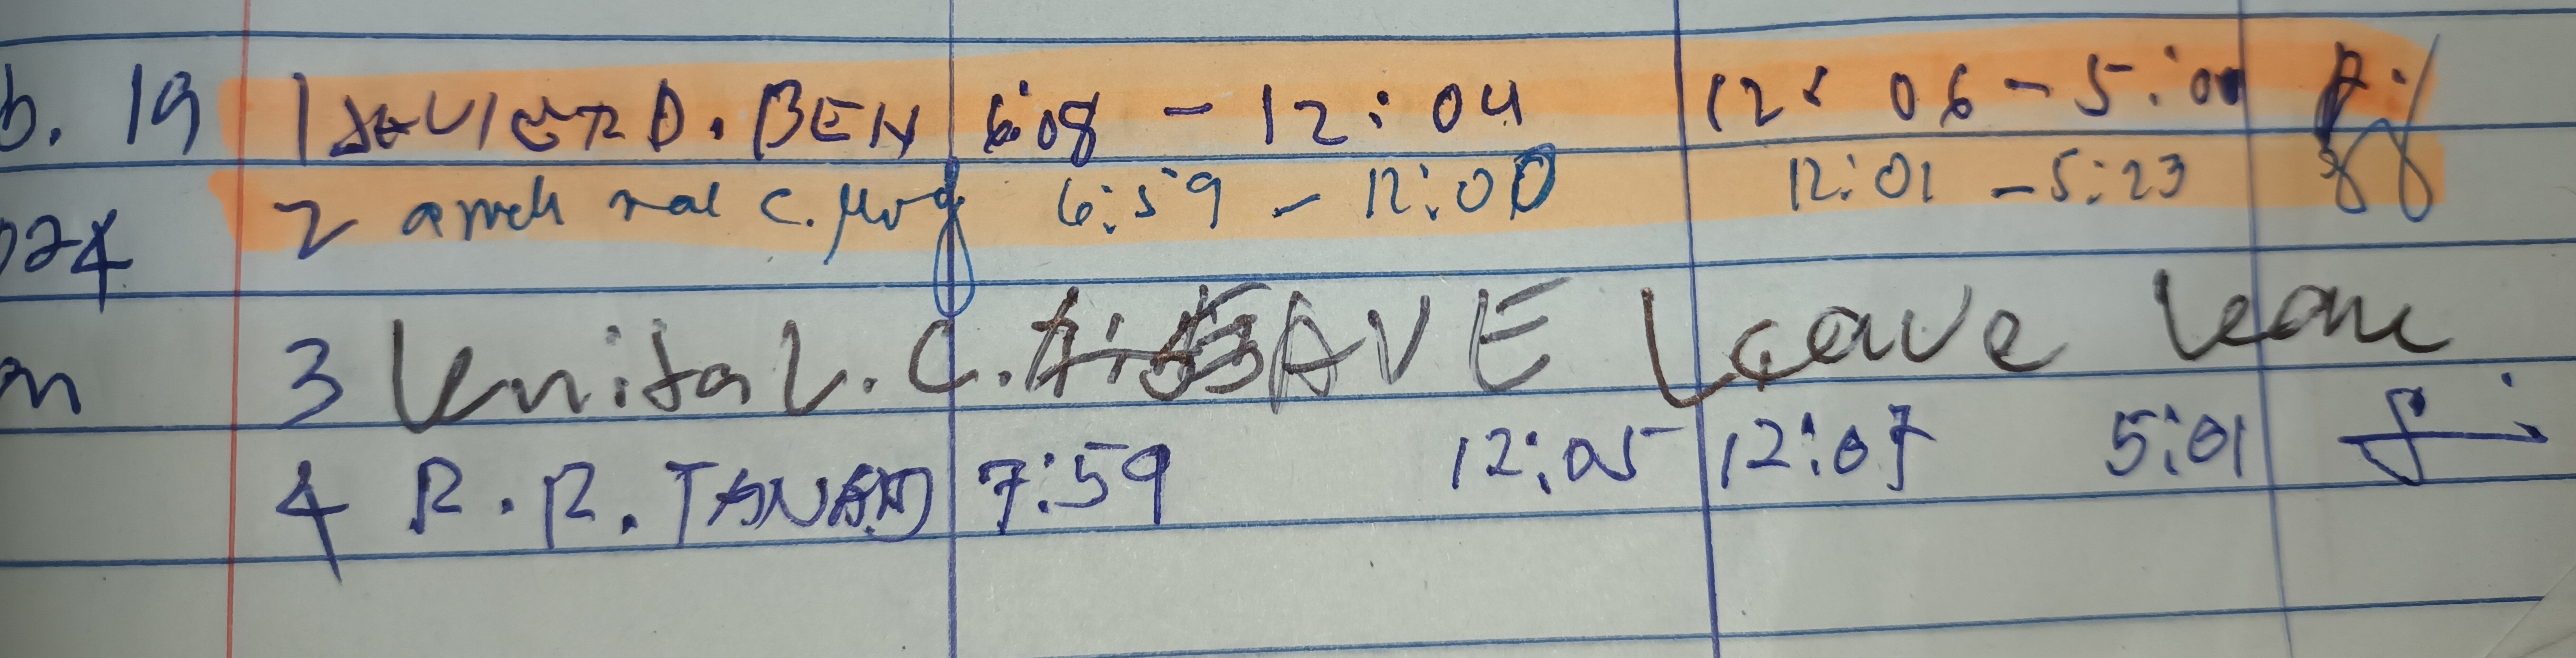 b. 19 1 JAVIER D. BEN 6:08 - 12:04 12:06 - 5:00
024 2 c. 6:59 - 12:00 12:01 - 5:23
m 3 L. C. AVE Leave leave
4 R. R. TANAID 7:59 12:05 12:07 5:01